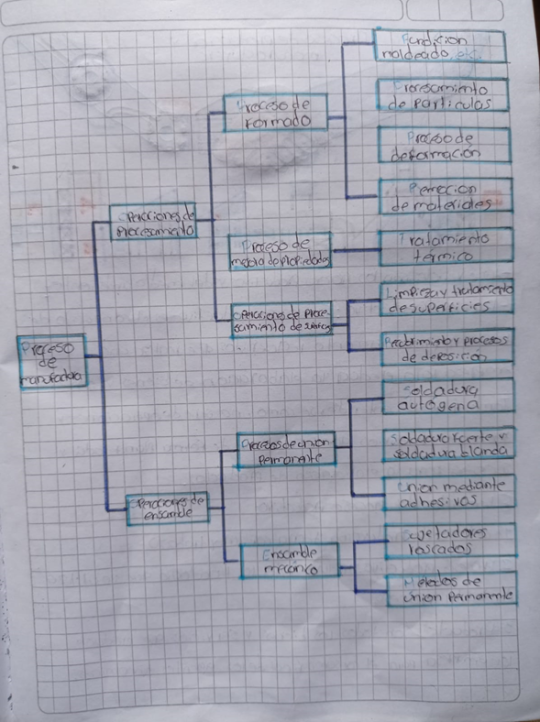 Fundicion
moldeado, etc.
Procesamiento
de particulas
Proceso de
Formado
Proceso de
deformación
Remocion
de materiales
Operaciones de
Procesamiento
Proceso de
mejora de propiedades
Tratamiento
térmico
Limpieza y tratamiento
de superficies
Operaciones de Proce
samiento de
Recubrimiento y procesos
de deposición
Proceso
de
manufactura
Soldadura
autogena
Procesos de union
Permanente
Soldadura Fuerte y
soldadura blanda
Union mediante
adhesivos
Operaciones de
ensamble
Sujetadores
roscados
Ensamble
mecánico
Metodos de
union permanente